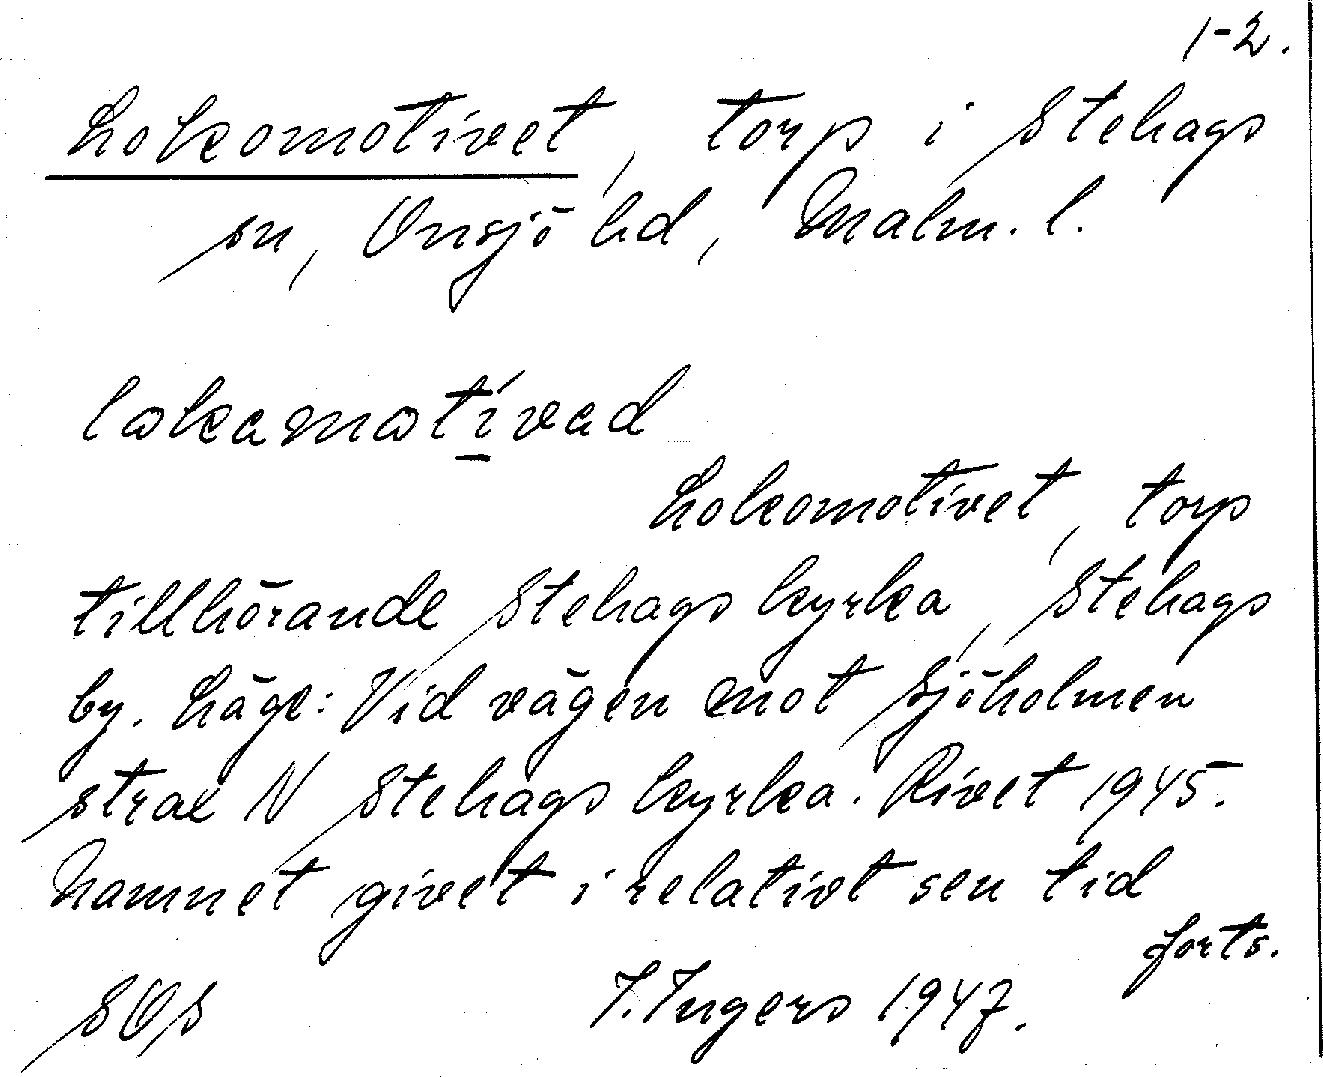 1-2.
Lokomotivet, torp i Stehags
sn, Onsjö hd, Malm. l.
lokamotívad
Lokomotivet, torp
tillhörande Stehags kyrka, Stehags
by. Läge: Vid vägen mot Sjöholmen
strax N Stehags kyrka. Rivet 1945.
Namnet givet i relativt sen tid
forts.
SOS
I. Ingers 1947.